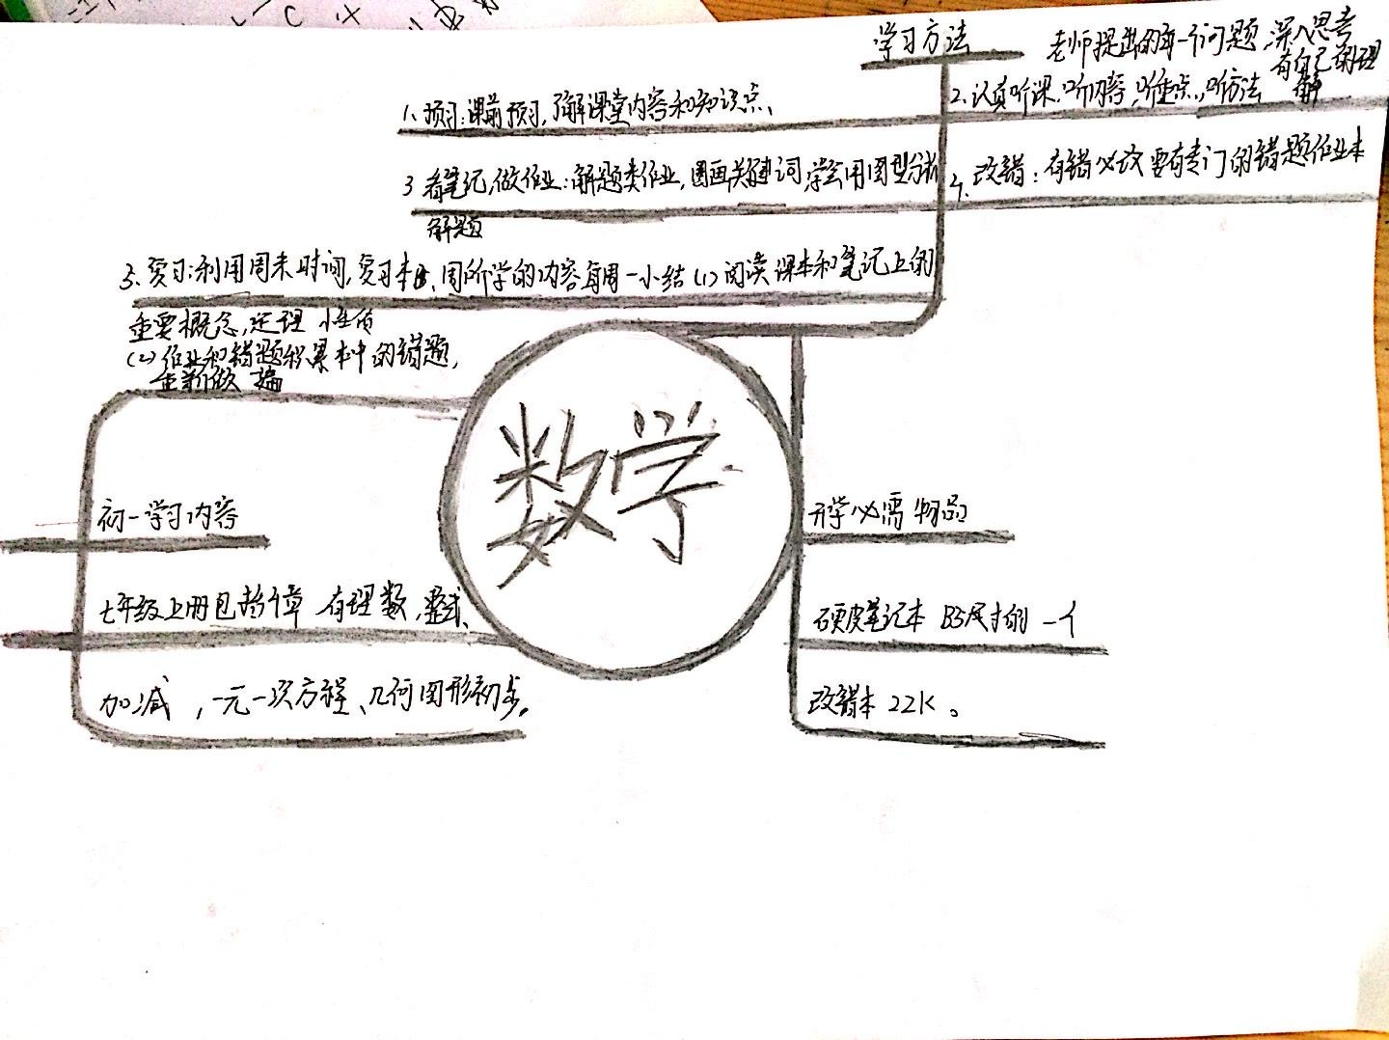 学习方法
老师提出的每一个问题,深入思考
有自己的理
解
1、预习:课前预习,了解课堂内容和知识点、
2.认真听课.听内容,听重点,听方法
3 看笔记,做作业:解题类作业,圈画关键词,学会用图型分析
解题
4. 改错:有错必改 要有专门的错题作业本
5、复习:利用周末时间,复习本周所学的内容每周一小结(1)阅读课本和笔记上的
重要概念,定理 性质
(2)作业和错题积累本中的错题,
重新做一遍
数学
初一学习内容
七年级上册包括4章 有理数,整式、
加减,一元一次方程、几何图形初步。
开学必需物品
硬皮笔记本 B5尺寸的 一个
改错本 22K。